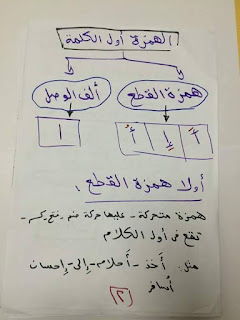 الهمزة أول الكلمة
همزة القطع ألف الوصل
أَ إِ أُ ا
أولا همزة القطع .
همزة متحركة - عليها حركة ضم - فتح - كسر
تقع فى أول الكلام
مثل: أَخذ - أَحلام - إِلى - إِحسان
أُسافر
(٢)